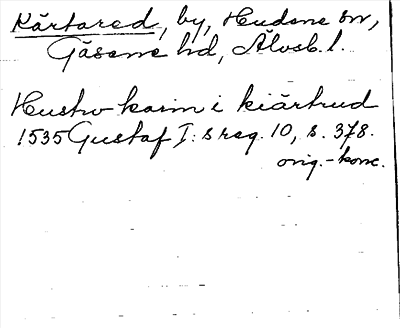 Kärtared, by, Hudene sn,
Gäsene hd, Älvsb. l.
Hustro karin i kiärtrud
1535 Gustaf I:s reg. 10, s. 378.
orig.-konc.